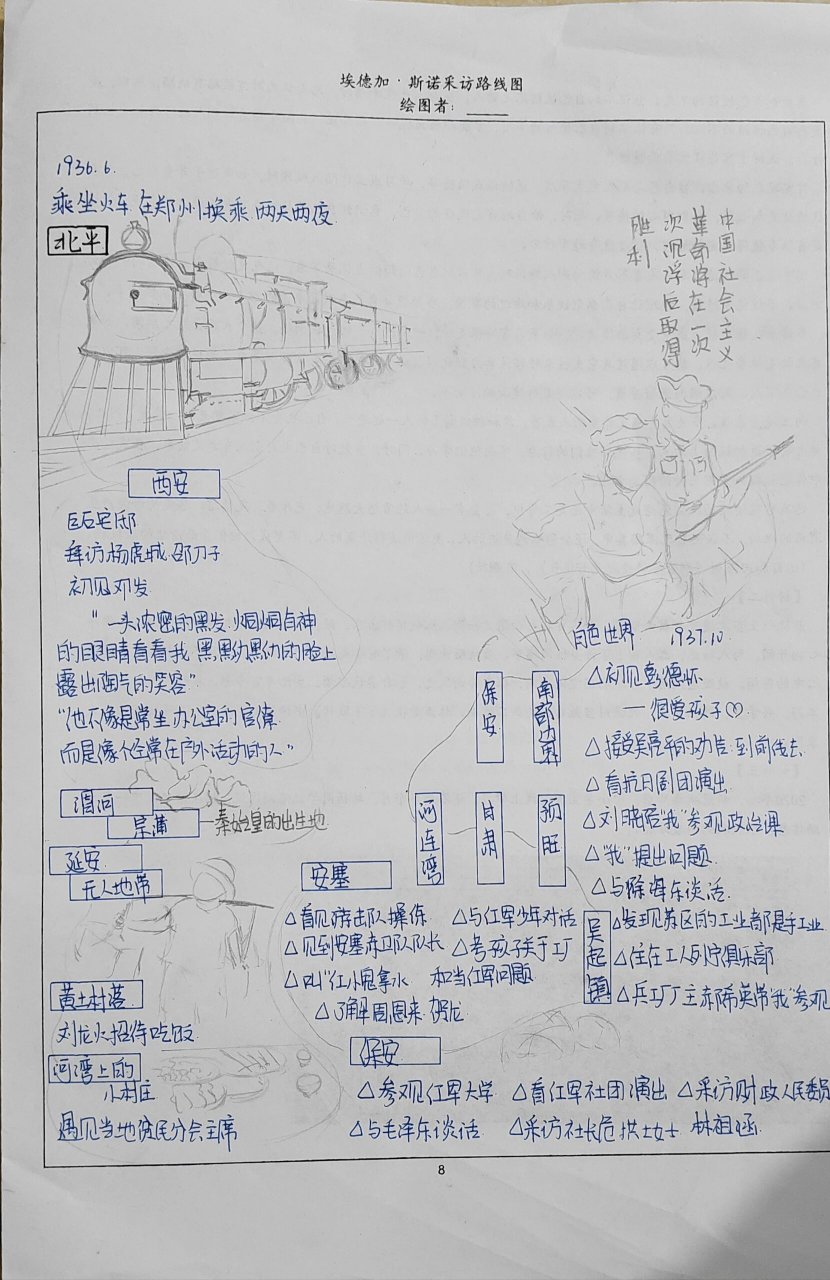 埃德加·斯诺采访路线图
绘图者：
1936.6.
乘坐火车.在郑州换乘.两天两夜.
北平
中国社会主义
革命将在一次
次沉浮后取得
胜利
西安
巨石宅邸
拜访杨虎城.邵力子
初见邓发
"一头浓密的黑发.炯炯有神
的眼睛看着我.黑黝黝的脸上
露出淘气的笑容"
"他不像是常坐办公室的官僚
而是像个经常在户外活动的人"
渭河
咸阳—秦始皇的出生地
延安
无人地带
黄土村落
刘龙火招待吃饭
河湾上的
小村庄
遇见当地贫民分会主席
安塞
△看见游击队操练
△与红军少年对话
△见到安塞赤卫队队长
△考孩子关于工厂
和当红军问题
△叫"红小鬼拿水
△了解周恩来.贺龙
保安
△参观红军大学
△看红军社团演出
△采访财政人民委员
林祖涵
△与毛泽东谈话
△采访社长危拱之女士
保安
南部边界
河连湾
甘肃
预旺
吴起镇
白色世界 1937.10
△初见彭德怀
—很爱孩子
△接受吴亮平的劝告.到前线去
△看抗日剧团演出
△刘晓陪我"参观政治课
△"我"提出问题
△与徐海东谈话
△发现苏区的工业都是手工业
△住在工人列宁俱乐部
△兵工厂主郝希英带"我"参观
8